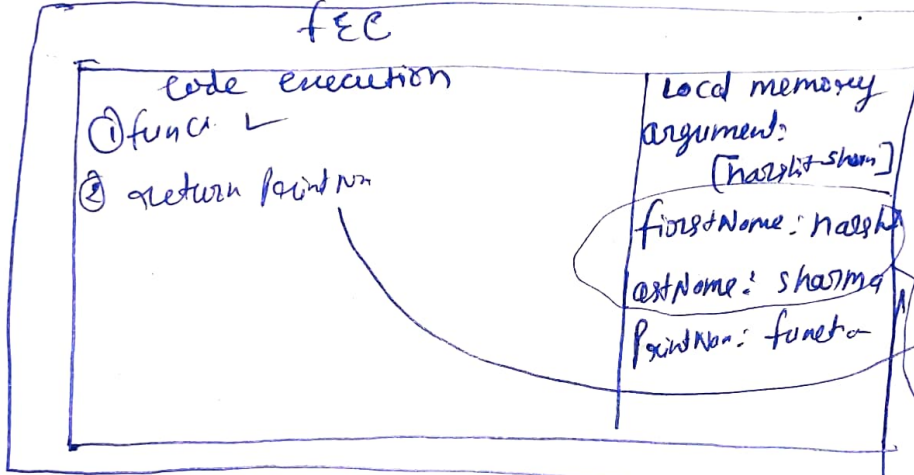 fEC
code execution
① func. ✓
② return PrintNm
Local memory
argument:
[harshit sharm]
firstName: harsh
lastName: sharma
PrintNam: function